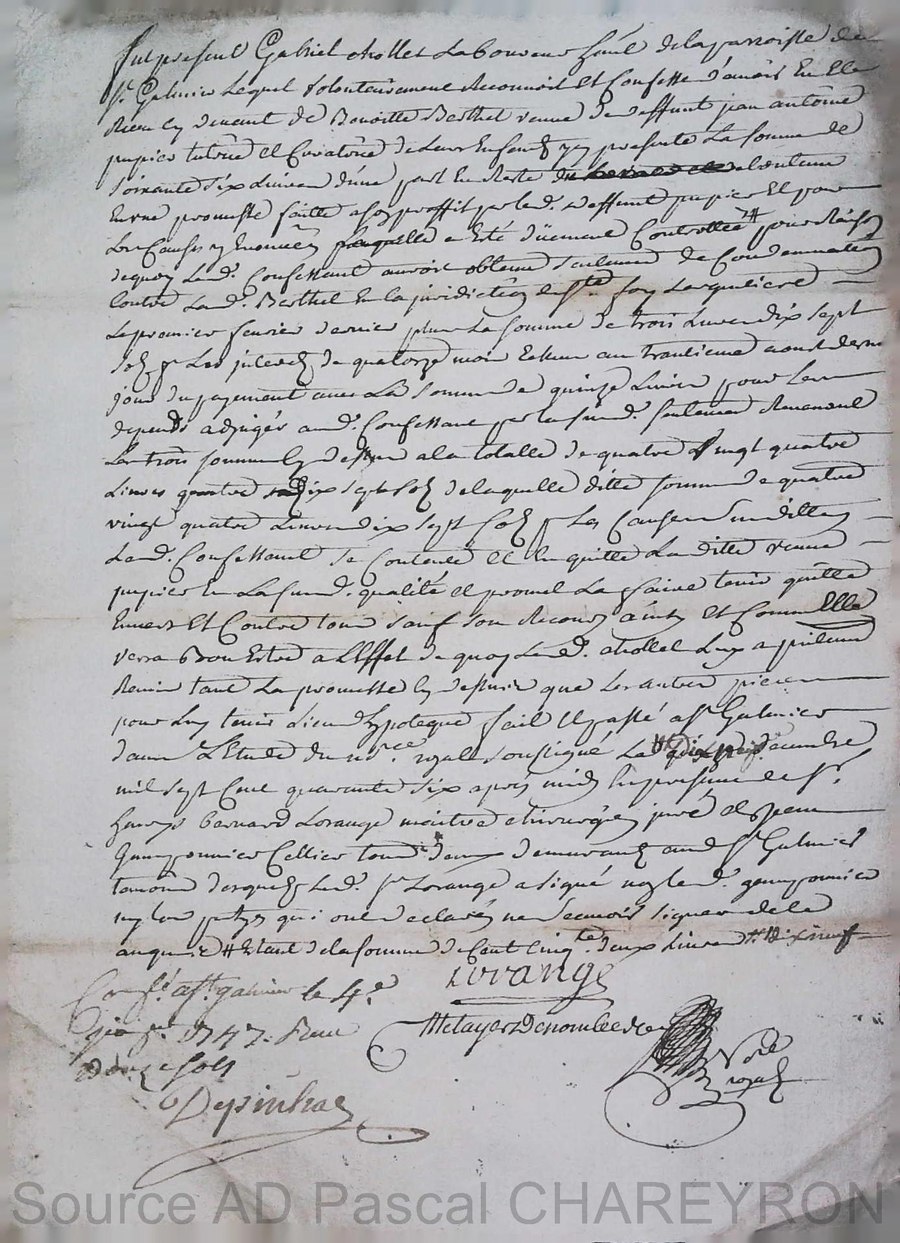 fut present Gabriel chollet Laboureur foru. de la parroisse de
St. Galmier Lequel Volontairement Reconnoit Et Confesse d'avoir Eu Et
Receu cy devant de Benoitte Berthet veuve de deffunt jean antoine
pupier tutrice et Curatrice de Leurs Enfens icy presente La somme de
soixante six Livres d'une part En Reste de contenue
En une promesse faitte a son proffit par led. deffunt pupier Et pour
Les Causes y Enoncées laquelle a Eté düement Controllée # pour Raison
dequoy Led. Confessant auroit obtenu sentence de Condemnation
Contre Lad. Berthet En la juridiction de Ste. foy Largentiere
Le premier fevrier dernier plus La somme de trois Livres dix sept
sols pr. Les interets de quatorze mois Echus au trantieme aoust dernier
jour du payement avec La somme de quinze Livres pour les
depends adjugés aud. Confessant par la susd. sentence Revenant
Les trois sommes cy dessus a la totalle de quatre Vingt quatre
Livres dix sept sols de laquelle ditte somme de quatre
vingt quatre Livres dix sept sols pr. Les Causes susdittes
Led. Confessant se Contente et En quitte La ditte veuve
pupier En La susd. qualité et promet La faire tenir quitte
Envers Et Contre tous sauf son Recours ainsy et Comm Elle
verra Bon Estre a L'Effet de quoy Led. chollet Luy a presentement
Remis tant La promesse cy dessus que Les autres pieces
pour Luy tenir Lieu d'hypoteque fait Et passé a St. Galmier
dans L'Etude du nore. royal soussigné Le decembre
mil sept Cent quarante six après midy En presence de Sr.
Bernard Lorange maitre chirurgien juré et
Cellier tous deux demeurants aud. St. Galmier
temoins desquels Led. Sr. Lorange a signé non led.
ny les partyes qui ont declaré ne scavoir signer de ce
enquis # Etant de la somme de Cent cinqte. deux Livres dix neuf
Lorange
Contr. a St. galmier le 4e.
1747. Reçu
douze sols
Nore
royal
Source AD Pascal CHAREYRON